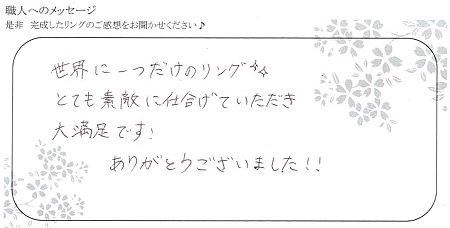 職人へのメッセージ
是非 完成したリングのご感想をお聞かせください♪
世界に一つだけのリング☆☆
とても素敵に仕上げていただき
大満足です!
ありがとうございました!!